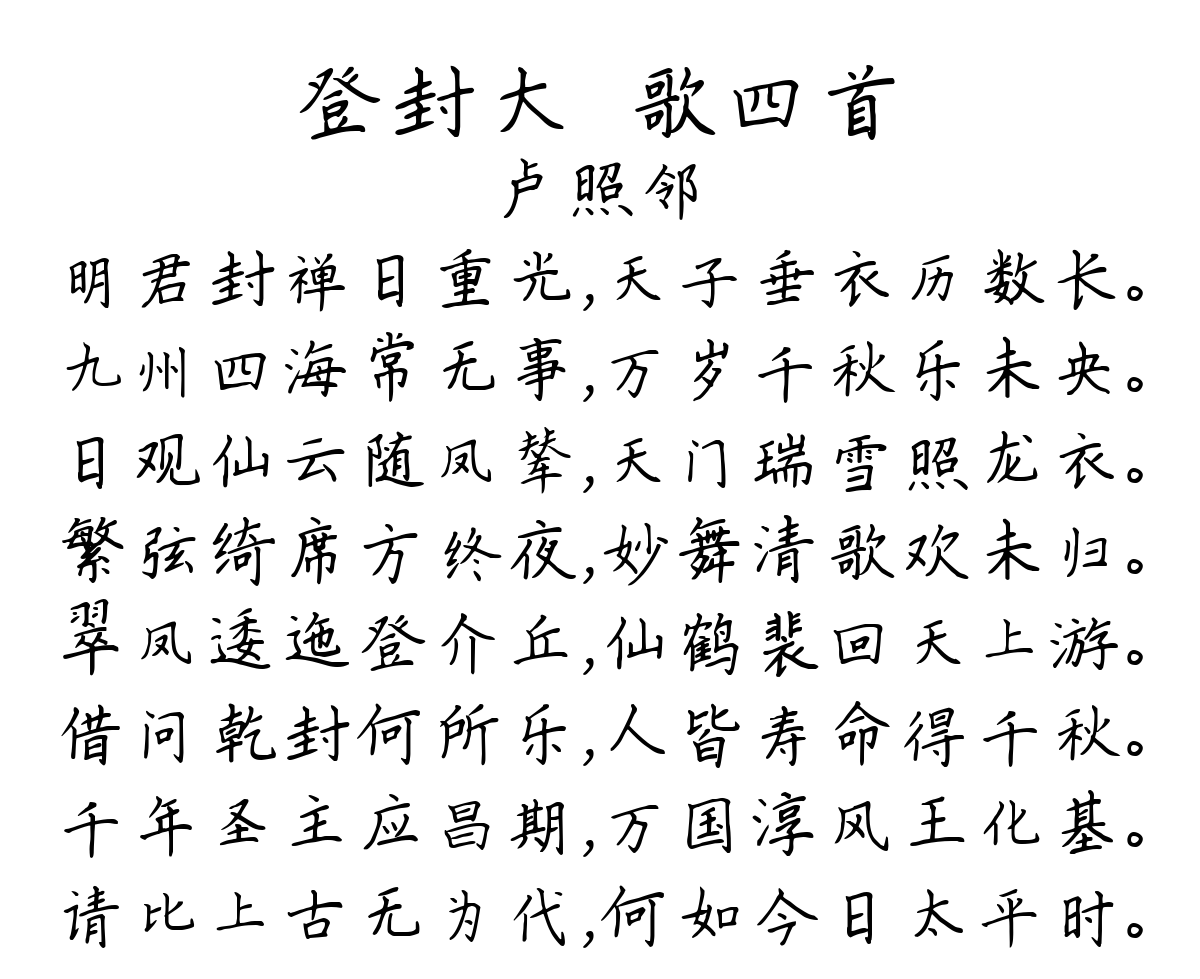 登封大 歌四首
卢照邻
明君封禅日重光,天子垂衣历数长。
九州四海常无事,万岁千秋乐未央。
日观仙云随凤辇,天门瑞雪照龙衣。
繁弦绮席方终夜,妙舞清歌欢未归。
翠凤逶迤登介丘,仙鹤裴回天上游。
借问乾封何所乐,人皆寿命得千秋。
千年圣主应昌期,万国淳风王化基。
请比上古无为代,何如今日太平时。